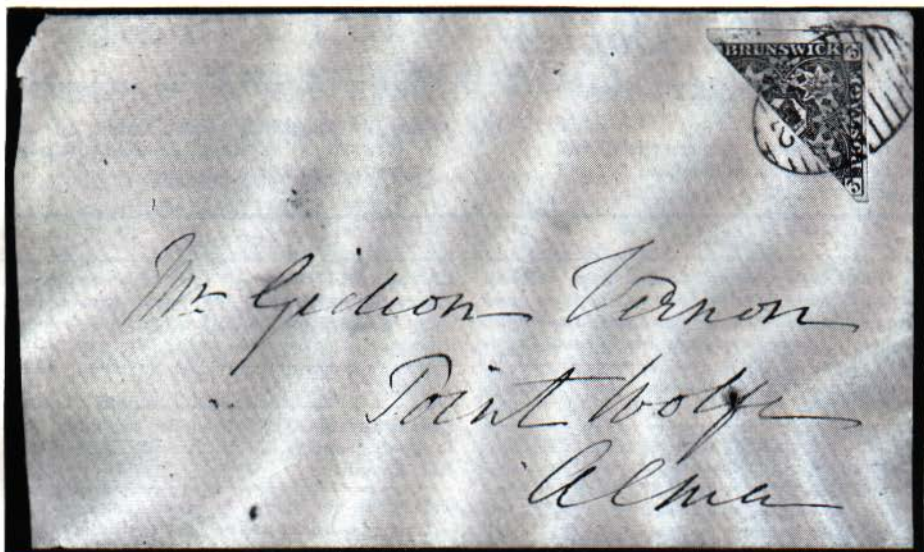 BRUNSWICK
Mr Gideon Vernon
Point Wolfe
Alma